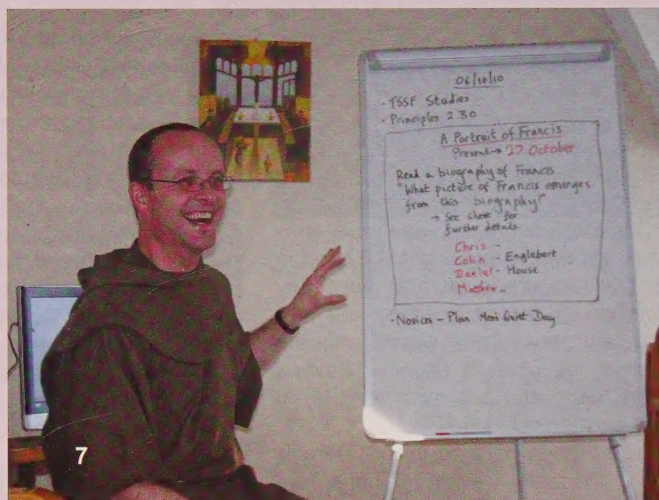 06/10/10
- TSSF Studies
- Principles 2.30
A Portrait of Francis
Present → 27 October
Read a biography of Francis
"What picture of Francis emerges
from this biography?"
→ See sheet for
further details
Chris -
Colin - Englebert
Daniel - House
Matthew -
- Novices - Plan Men's Quiet Day
7